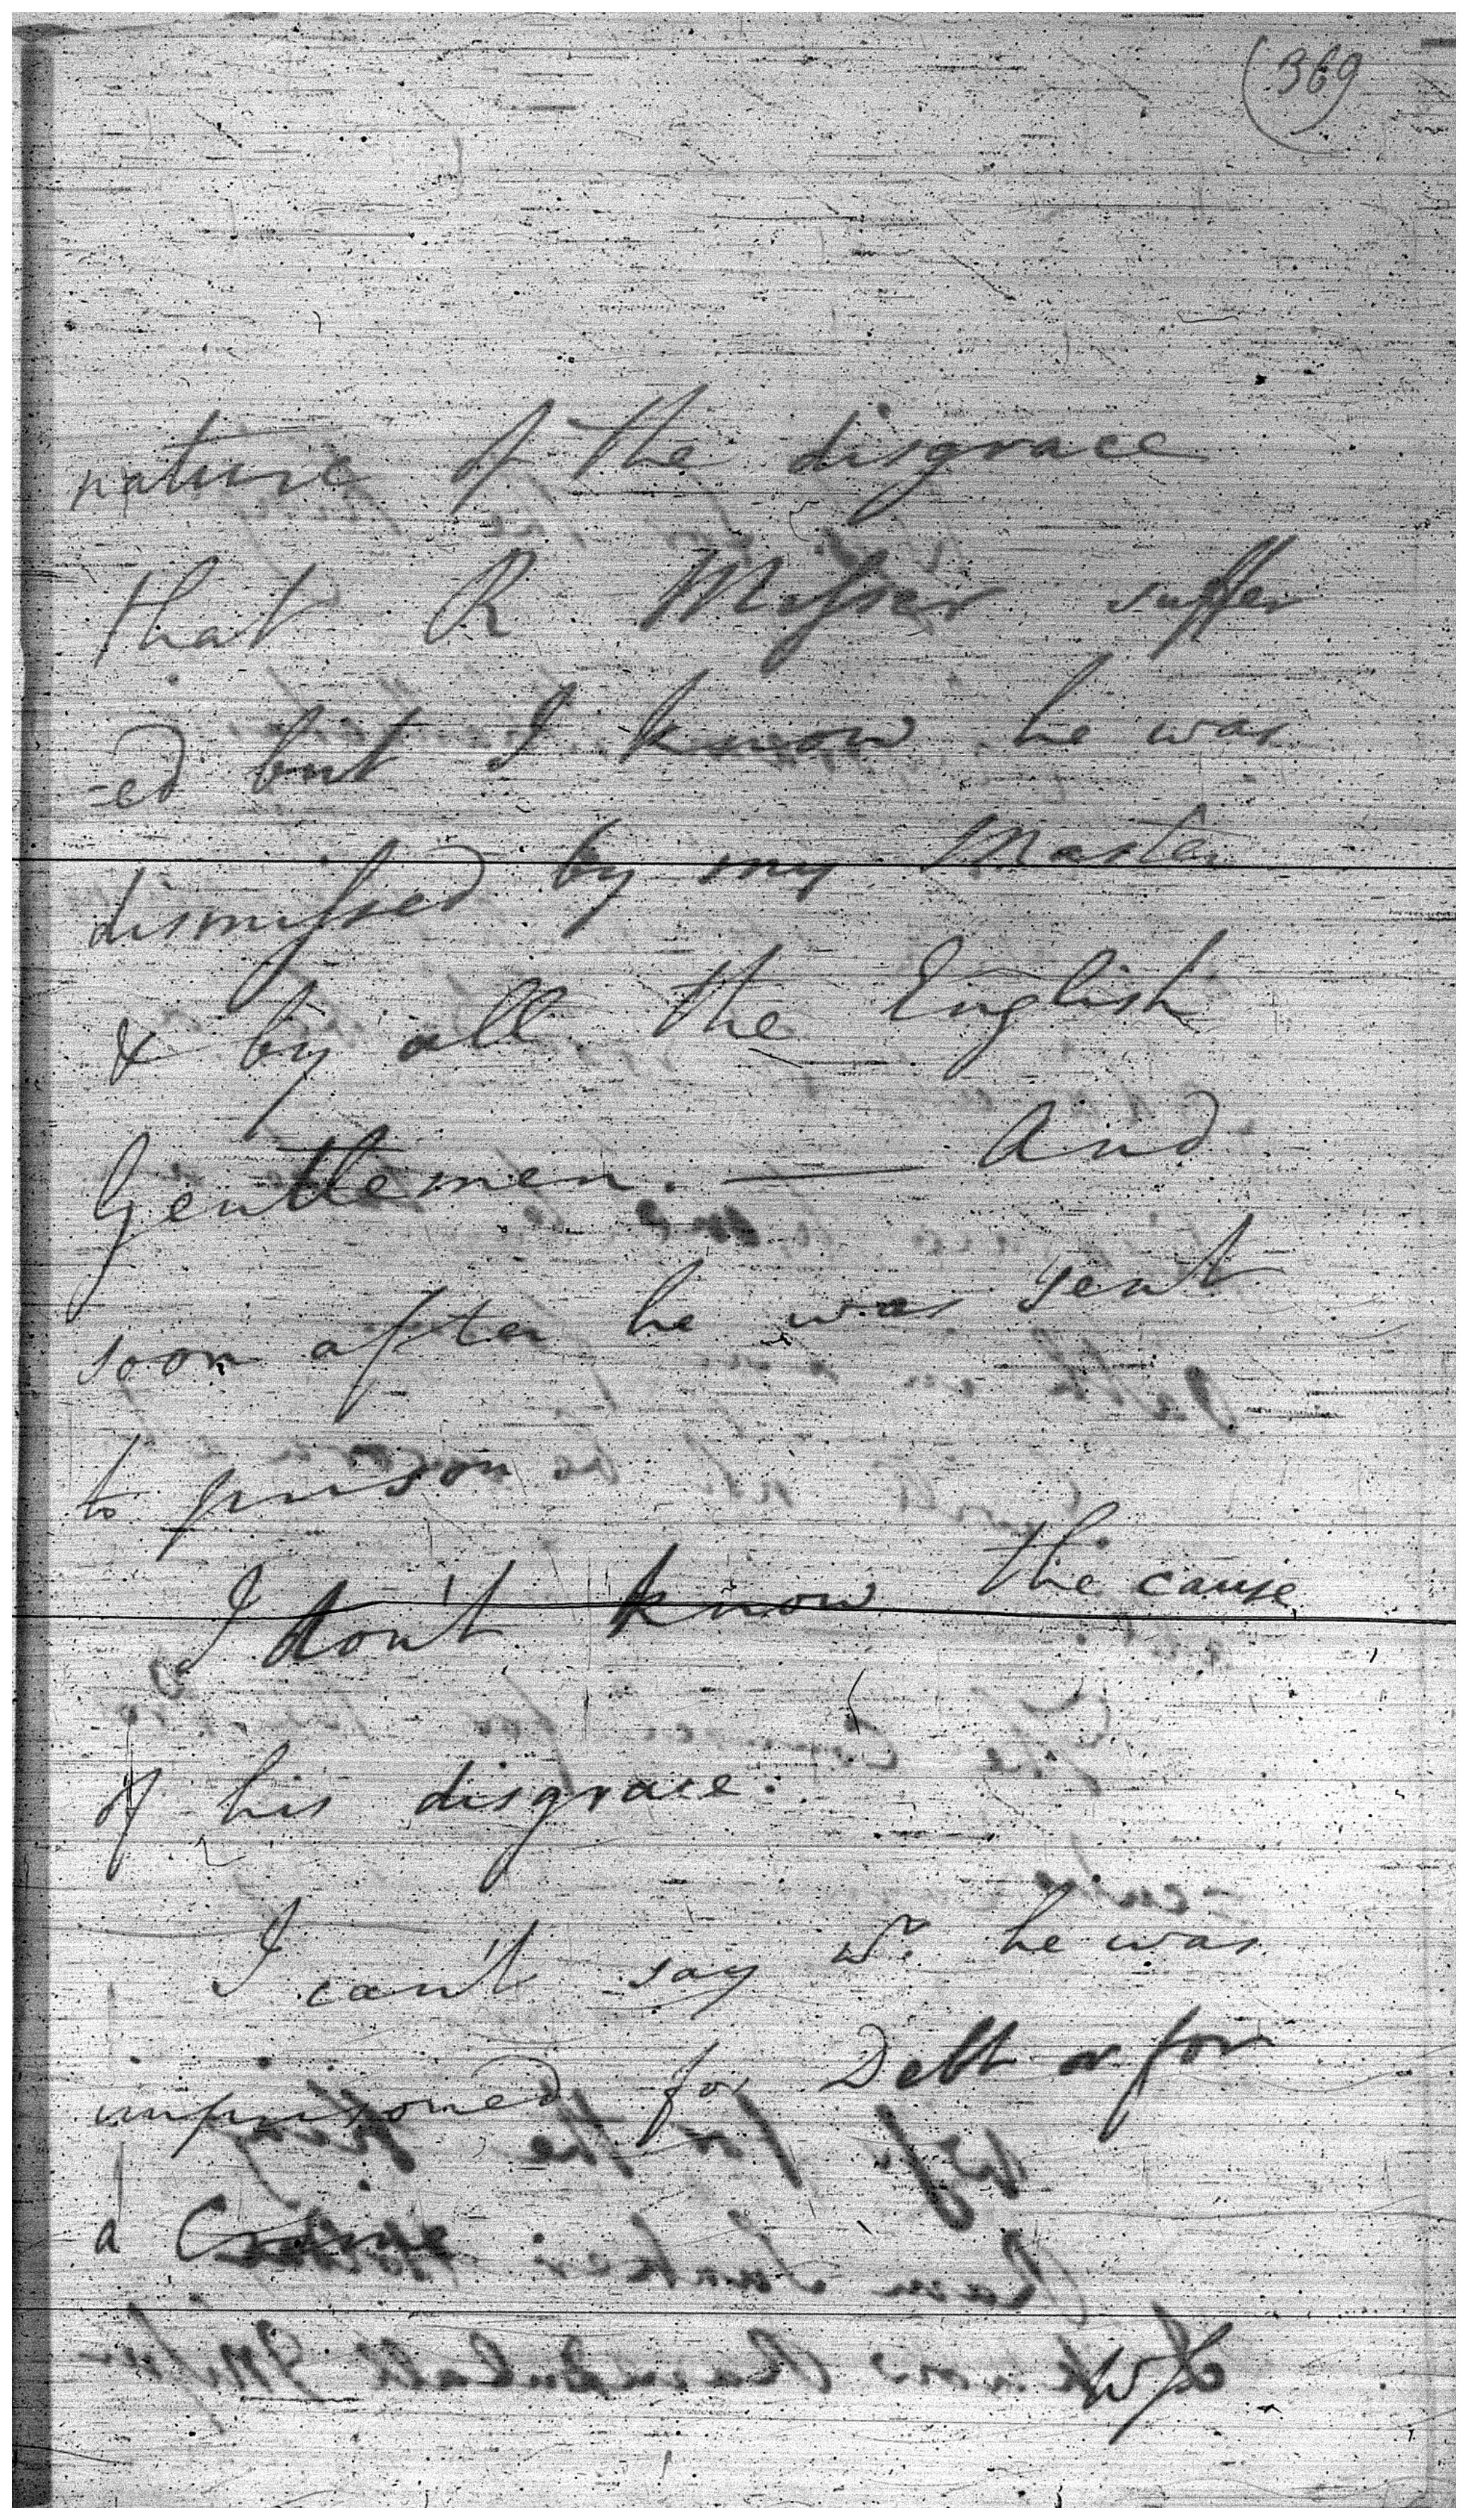 (369
nature of the disgrace
that R Misser suffer
-ed but I know he was
dismissed by my Master
& by all the English
Gentlemen. — And
soon after he was sent
to prison
I don't know the cause
of his disgrace.
I can't say wr. he was
imprisoned for Debt or for
a Crime